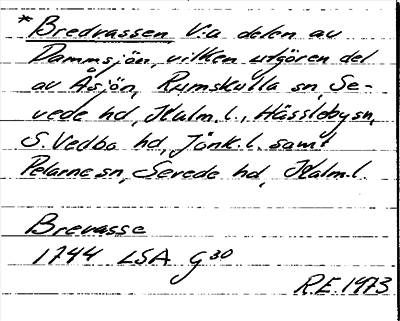 *Bredvassen V:a delen av
Dammsjön, vilken utgören del
av Åsjön, Rumskulla sn, Se-
vede hd, Kalm.l., Hässleby sn,
S. Vedbo hd, Jönk.l. samt
Pelarne sn, Sevede hd, Kalm.l.
Brevasse
1744 LSA G30
R.E. 1973